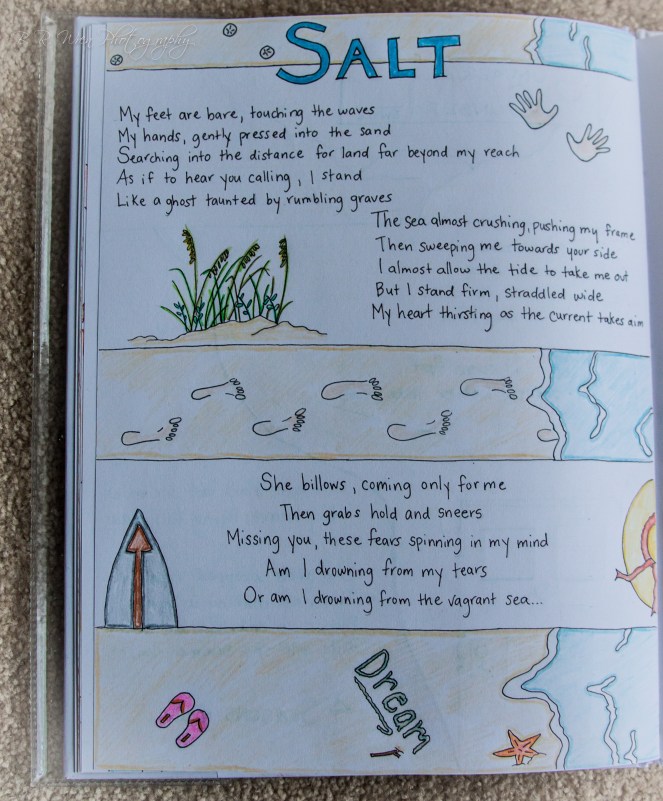 SALT
My feet are bare, touching the waves
My hands, gently pressed into the sand
Searching into the distance for land far beyond my reach
As if to hear you calling, I stand
Like a ghost taunted by rumbling graves
The sea almost crushing, pushing my frame
Then sweeping me towards your side
I almost allow the tide to take me out
But I stand firm, straddled wide
My heart thirsting as the current takes aim
She billows, coming only for me
Then grabs hold and sneers
Missing you, these fears spinning in my mind
Am I drowning from my tears
Or am I drowning from the vagrant sea...
Dream